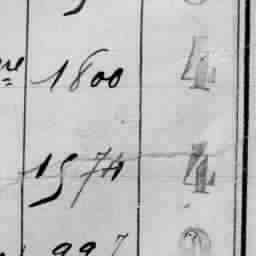 re 1800 4
1574 4
997